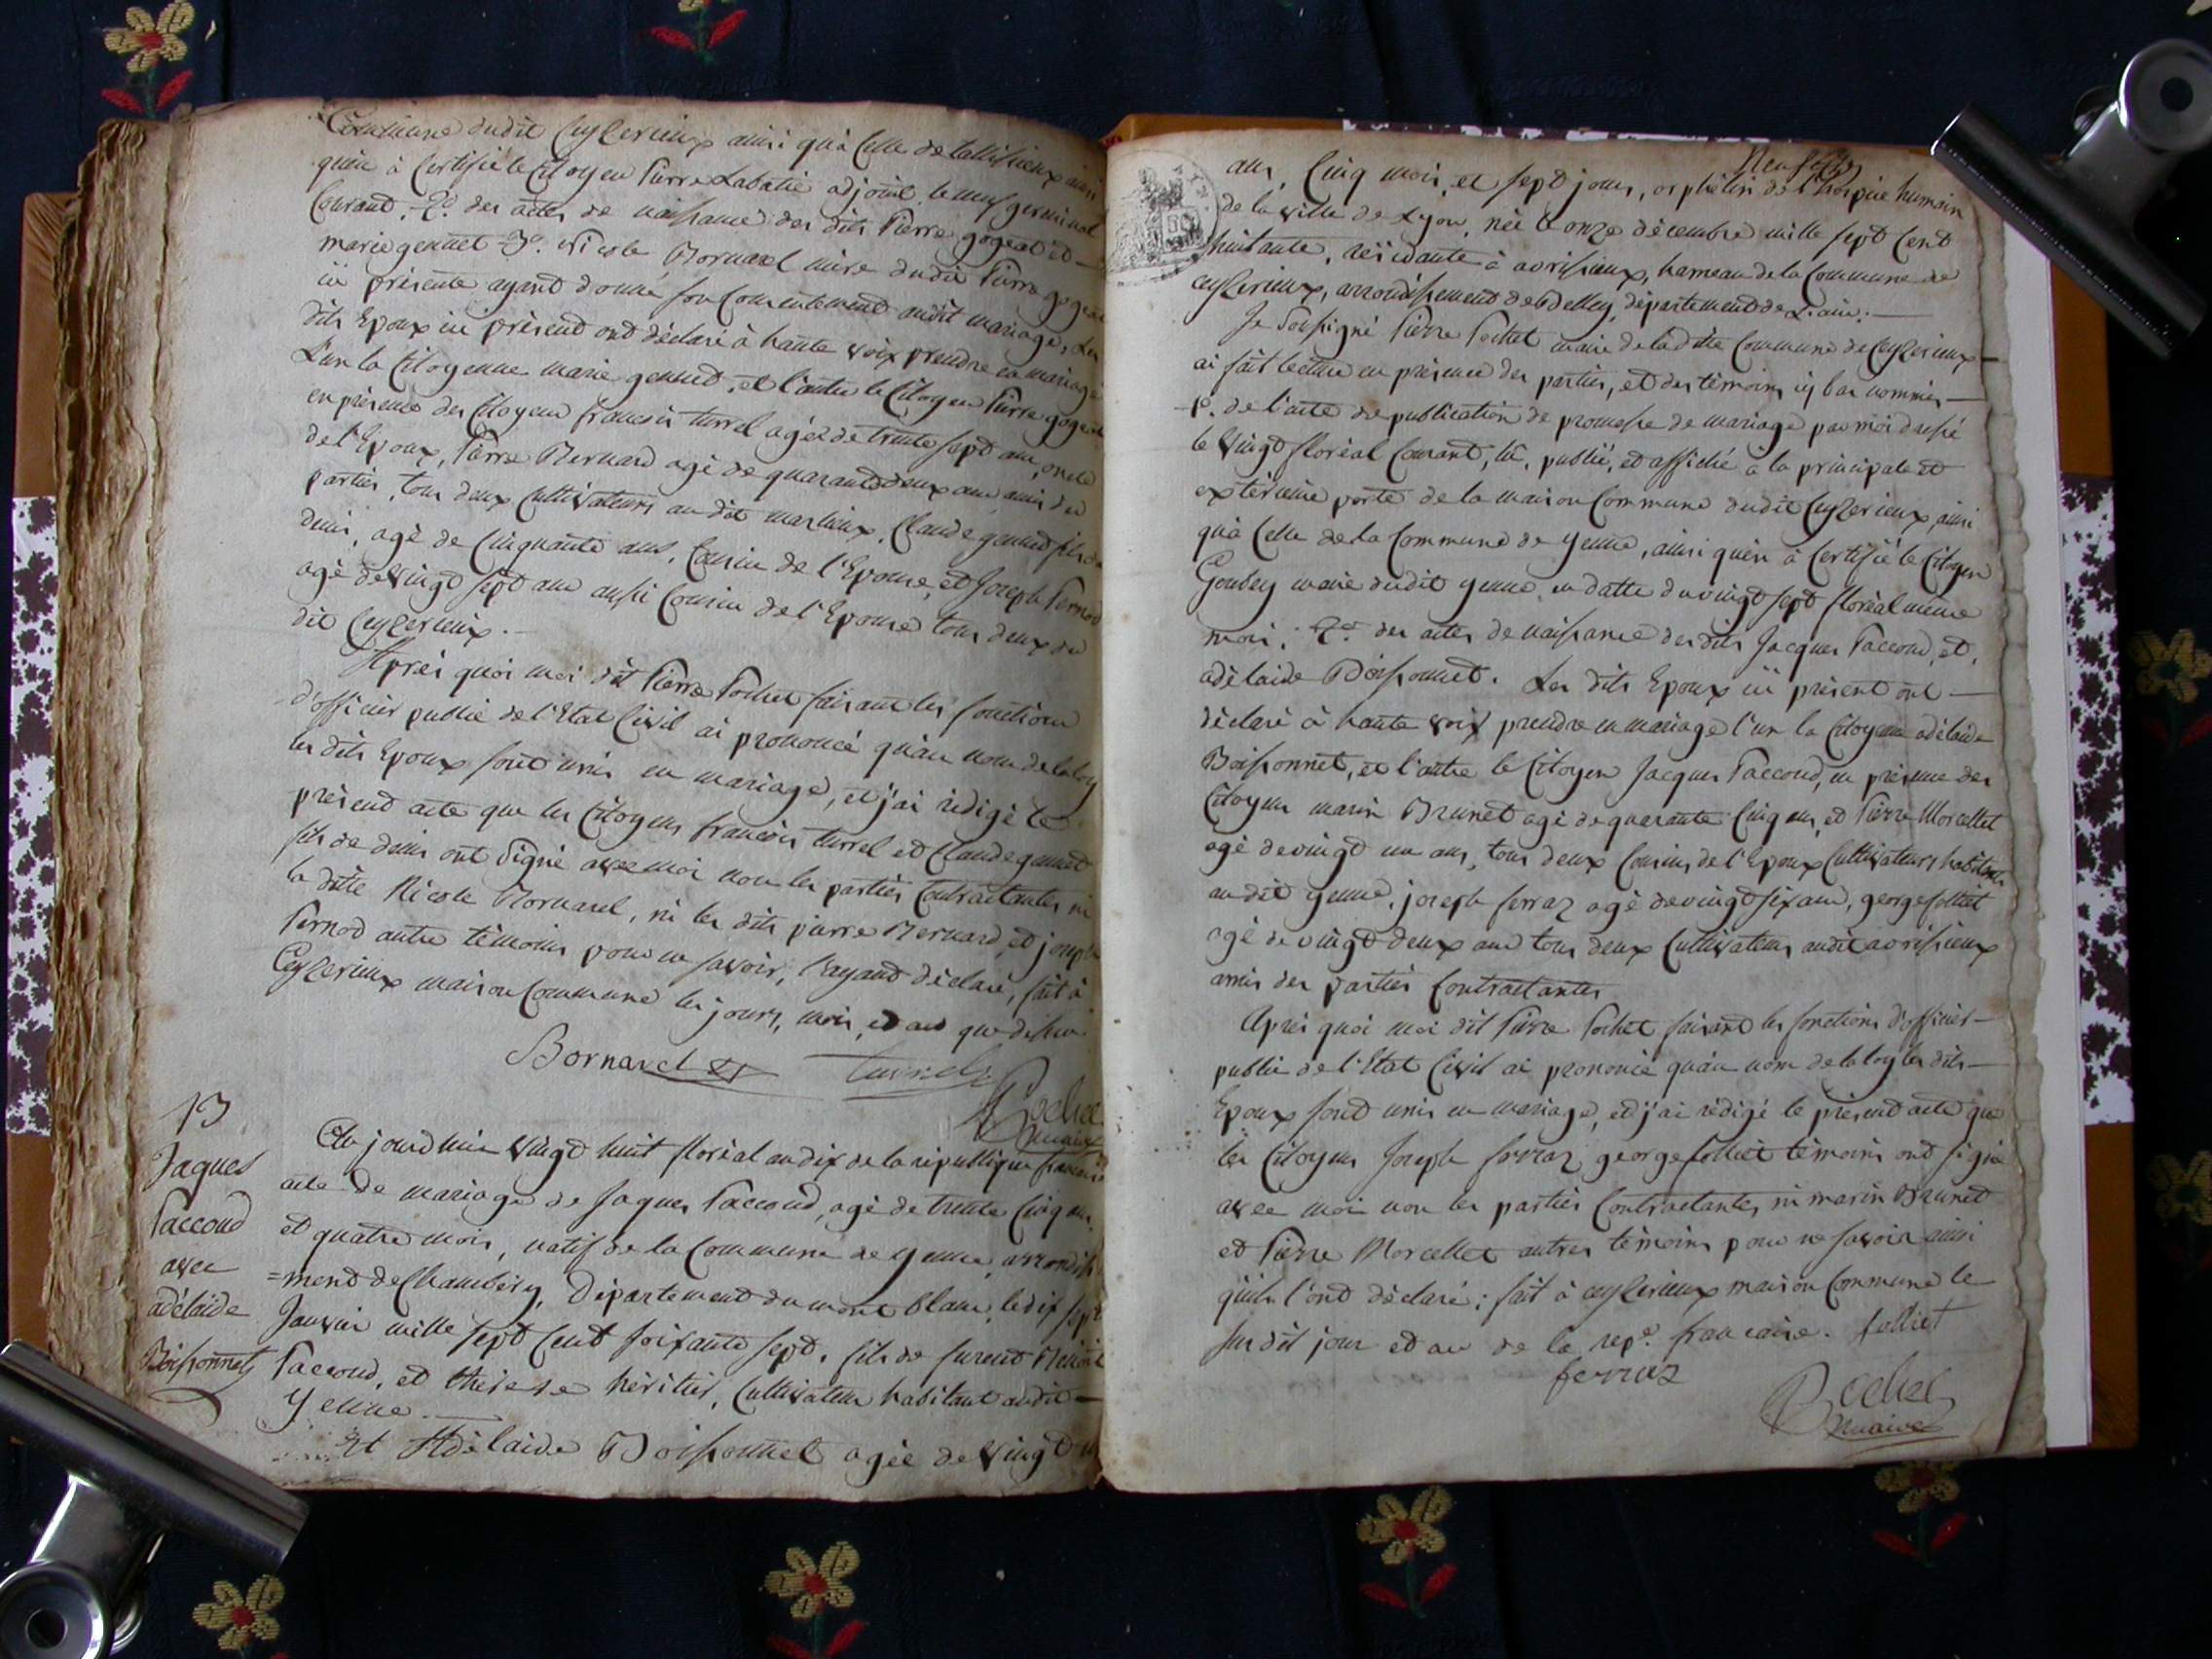 Commune dudit Ceyzerieux ainsi qu'à Celle de tallissieux ainsi
qu'en à Certifié le Citoyen Pierre Labatie adjoint, le neuf germinal
Courant. 2o. des actes de naissance des dits Pierre gogeat et
marie gennet 3o. Nicole Bornarel mère dudit Pierre gogeat
ici présente ayant donné son Consentement audit mariage, Les
dits Epoux ici présent ont déclaré à haute voix prendre en mariage
L'un la Citoyenne marie gennet, et l'autre le Citoyen Pierre gogeat
en présence des Citoyens francois turrel agée de trente sept ans, oncle
de l'Epoux, Pierre Bernard agé de quarante deux ans amis des
parties, tous deux Cultivateurs audit marlieux, Claude gennet fils de
denis, agé de Cinquante ans, Cousin de l'Epouse, et Joseph Pernod
agé de vingt sept ans aussi Cousin de l'Epouse tous deux du
dit Ceyzerieux.
Après quoi moi dit Pierre Pochet faisant les fonctions
d'officier public de l'Etat Civil ai prononcé qu'au nom de la loy
les dits Epoux sont unis en mariage, et j'ai rédigé le
présent acte que les Citoyens francois turrel et Claude gennet
fils de denis ont signé avec moi non les parties Contractantes ni
la ditte Nicole Bornarel, ni les dits pierre Bernard, et joseph
Pernod autre témoins pour ne savoir, l'ayant déclaré, fait à
Ceyzerieux maison Commune les jours, mois, et an que dessus
Bornarel turrel
Pochet
maire
13
Jaques
Paccoud
avec
adélaïde
Boissonnet
Ce jourd'hui vingt huit floréal an dix de la république francaise
acte de mariage de Jaques Paccoud, agé de trente Cinq ans,
et quatre mois, natif de la Commune de yenne, arrondisse
=ment de Chambéry, Département du mont blanc, le dix sept
Janvier mille sept Cent soixante sept, fils de furent
Paccoud, et thérese héritier, Cultivateur habitant audit
Yenne.
Et Adélaïde Boissonnet agée de vingt un
Neuf
ans, Cinq mois, et sept jours, orpheline de l'hospice humain
de la ville de Lyon, née le onze décembre mille sept Cent
huitante, résidante à avrissieux, hameau de la Commune de
ceyzerieux, arrondissement de Belley, département de L'ain.
Je soussigné Pierre Pochet maire de la ditte Commune de Ceyzerieux
ai fait lecture en présence des parties, et des témoins cy bas nommés
1o. de l'acte de publication de promesse de mariage par moi dressé
le vingt floréal Courant, lû, publié, et affiché à la principale et
extérieure porte de la maison Commune dudit Ceyzerieux, ainsi
qu'à Celle de la Commune de yenne, ainsi qu'en à Certifié le Citoyen
Goubey maire dudit yenne en datte du vingt sept floréal même
mois; 2o. des actes de naissance des dits Jacques Paccoud, et,
adélaïde Boissonnet. Les dits Epoux ici présent ont
déclaré à haute voix prendre en mariage l'un la Citoyenne adélaïde
Boissonnet, et l'autre le Citoyen Jacques Paccoud, en présence des
Citoyens marin Brunet agé de quarante Cinq ans, et Pierre Morcellet
agé de vingt un ans, tous deux Cousins de l'Epoux Cultivateurs habitants
audit yenne, joseph ferraz agé de vingt six ans, george folliet
agé de vingt deux ans tous deux Cultivateurs audit avrissieux
amis des parties Contractantes
Après quoi moi dit Pierre Pochet faisant les fonctions d'officier
public de l'Etat Civil ai prononcé qu'au nom de la loy les dits
Epoux sont unis en mariage, et j'ai rédigé le présent acte que
les Citoyens Joseph ferraz george folliet témoins ont signé
avec moi non les parties Contractantes, ni marin Brunet
et Pierre Morcellet autres témoins pour ne savoir ainsi
qu'ils l'ont déclaré; fait à ceyzerieux maison Commune le
sus dit jour et an de la repe. francaise. folliet
ferraz
Pochet
maire